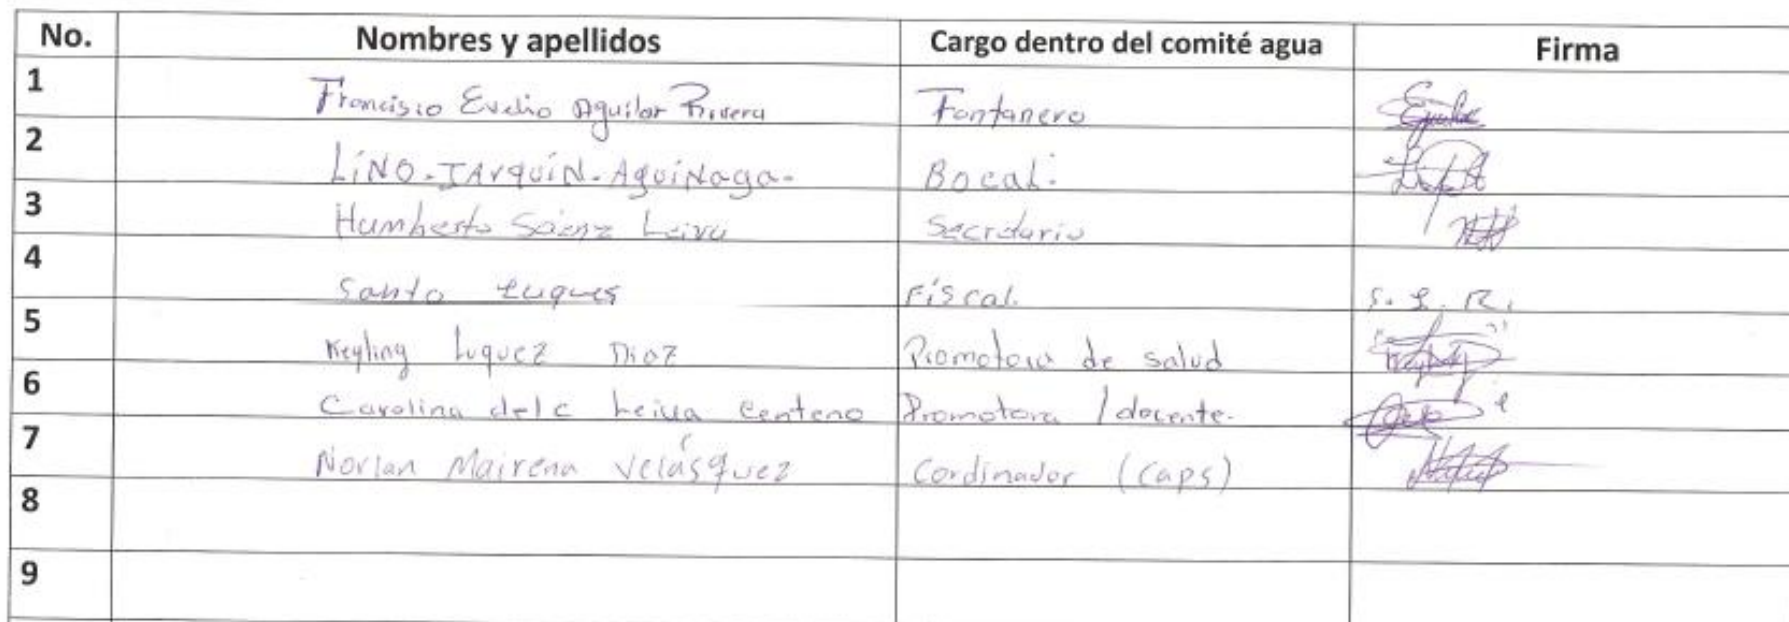 No. Nombres y apellidos Cargo dentro del comité agua Firma
1 Francisco Evelio Aguilar Rivera Fontanero
2 LiNO-TArquíN-AguiNaga- Bocal.
3 Humberto Sáenz Leiva Secretario
4 Santo Luques Físcal. S. L. R.
5 Keyling Luquez Diaz Promotora de salud
6 Carolina del c Leiva Centeno Promotora / docente.
7 Norlan Mairena Velásquez Cordinador (Caps)
8
9